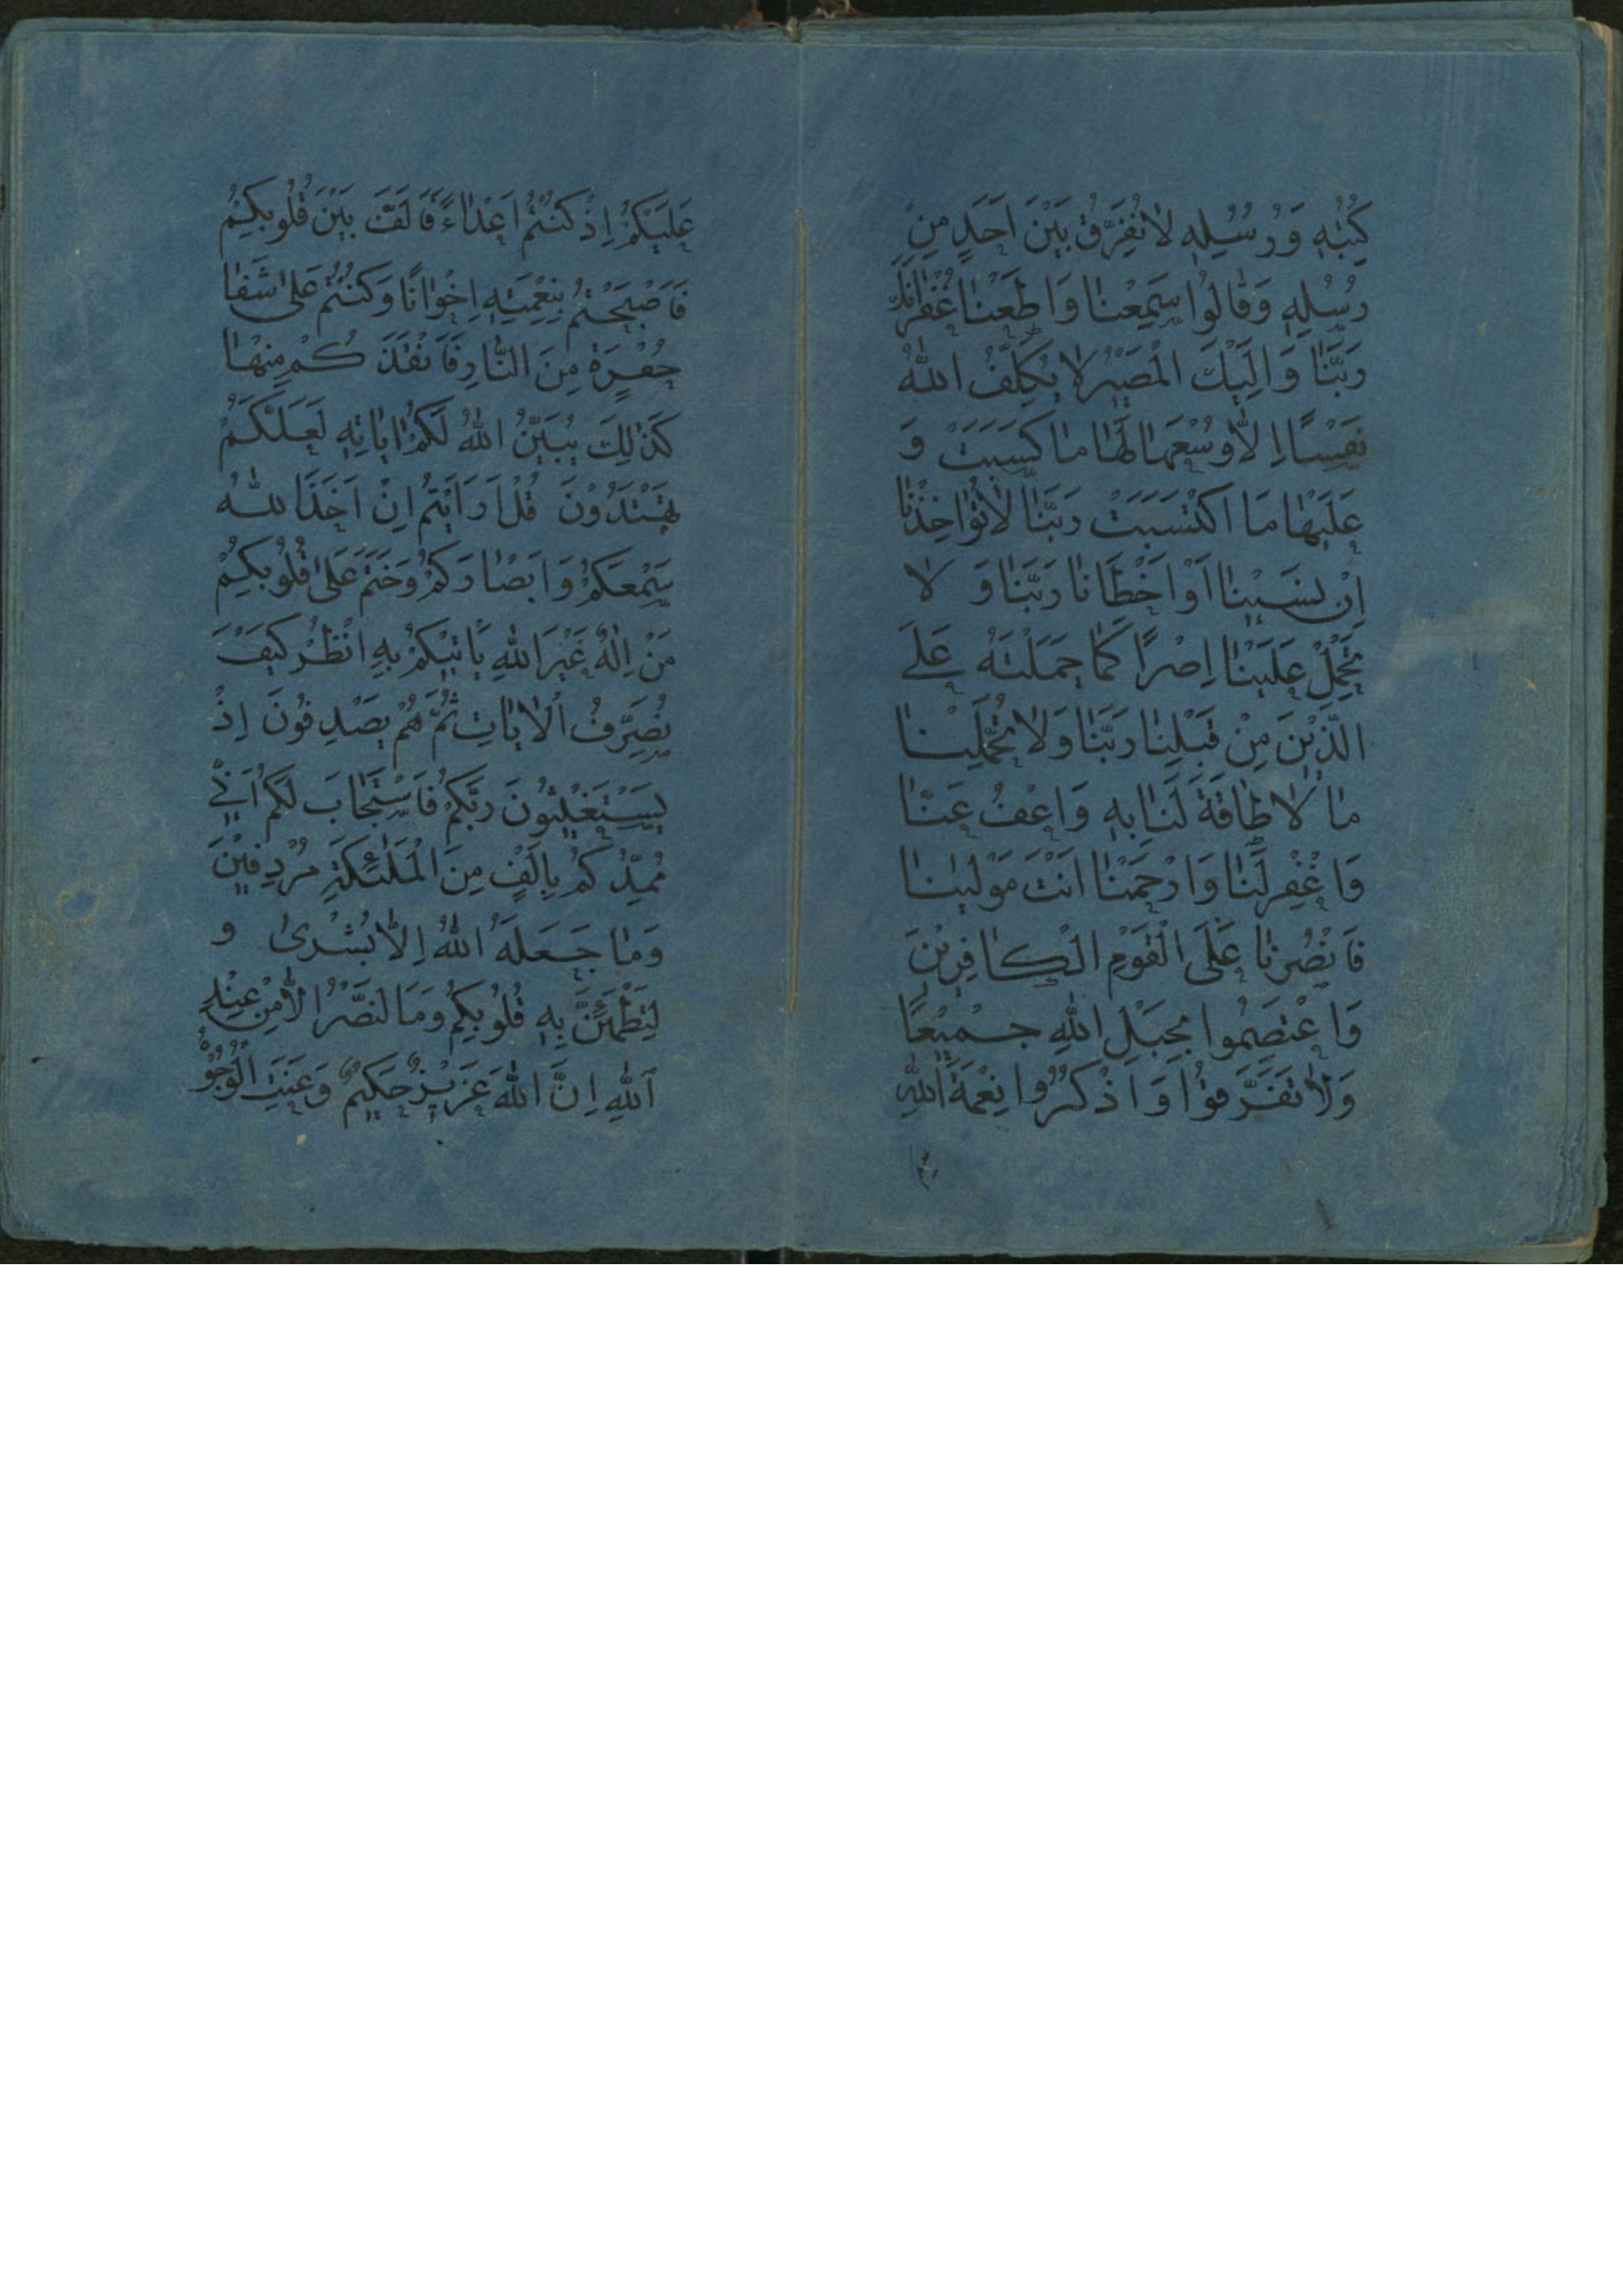 كُتُبِهِ وَرُسُلِهِ لَا نُفَرِّقُ بَيْنَ اَحَدٍ مِنْ
رُسُلِهِ وَقَالُوا سَمِعْنَا وَاَطَعْنَا غُفْرَانَكَ
رَبَّنَا وَاِلَيْكَ الْمَصِيْرُ لَا يُكَلِّفُ اللّٰهُ
نَفْسًا اِلَّا وُسْعَهَا لَهَا مَا كَسَبَتْ وَ
عَلَيْهَا مَا اكْتَسَبَتْ رَبَّنَا لَا تُؤَاخِذْنَا
اِنْ نَسِيْنَا اَوْ اَخْطَانَا رَبَّنَا وَ لَا
تَحْمِلْ عَلَيْنَا اِصْرًا كَمَا حَمَلْتَهُ عَلَى
الَّذِيْنَ مِنْ قَبْلِنَا رَبَّنَا وَلَا تُحَمِّلْنَا
مَا لَا طَاقَةَ لَنَا بِهِ وَاعْفُ عَنَّا
وَاغْفِرْ لَنَا وَارْحَمْنَا اَنْتَ مَوْلٰينَا
فَانْصُرْنَا عَلَى الْقَوْمِ الْكَافِرِيْنَ
وَاعْتَصِمُوا بِحَبْلِ اللّٰهِ جَمِيْعًا
وَلَا تَفَرَّقُوْا وَاذْكُرُوا نِعْمَةَ اللّٰهِ
عَلَيْكُمْ اِذْ كُنْتُمْ اَعْدَاءً فَاَلَّفَ بَيْنَ قُلُوبِكُمْ
فَاَصْبَحْتُمْ بِنِعْمَتِهِ اِخْوَانًا وَكُنْتُمْ عَلٰى شَفَا
حُفْرَةٍ مِنَ النَّارِ فَاَنْقَذَ كُمْ مِنْهَا
كَذٰلِكَ يُبَيِّنُ اللّٰهُ لَكُمْ اٰيَاتِهِ لَعَلَّكُمْ
تَهْتَدُوْنَ قُلْ اَرَاَيْتُمْ اِنْ اَخَذَ اللّٰهُ
سَمْعَكُمْ وَاَبْصَارَكُمْ وَخَتَمَ عَلٰى قُلُوبِكُمْ
مَنْ اِلٰهٌ غَيْرُ اللّٰهِ يَاْتِيْكُمْ بِهِ اُنْظُرْ كَيْفَ
نُصَرِّفُ الْاٰيَاتِ ثُمَّ هُمْ يَصْدِفُونَ اِذْ
تَسْتَغِيْثُوْنَ رَبَّكُمْ فَاسْتَجَابَ لَكُمْ اَنِّي
مُمِدُّكُمْ بِاَلْفٍ مِنَ الْمَلٰئِكَةِ مُرْدِفِيْنَ
وَمَا جَعَلَهُ اللّٰهُ اِلَّا بُشْرٰى و
لِتَطْمَئِنَّ بِهِ قُلُوْبُكُمْ وَمَا لنَّصْرُ الَّا مِنْ عِنْدِ
اللّٰهِ اِنَّ اللّٰهَ عَزِيْزٌ حَكِيْمٌ وَعَنَتِ الْوُجُوْهُ